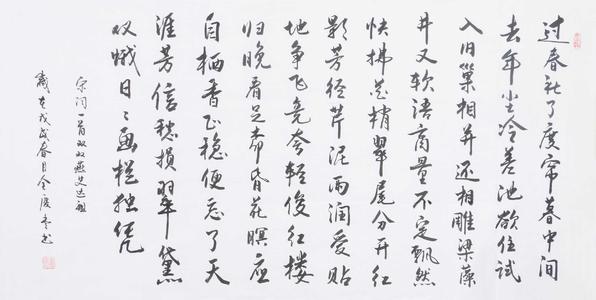 过春社了度帘幕中间
去年尘冷差池欲住试
入旧巢相并还相雕梁藻
井又软语商量不定飘然
快拂花梢翠尾分开红
影芳径芹泥雨润爱贴
地争飞竞夸轻俊红楼
归晚看足柳昏花暝应
自栖香正稳便忘了天
涯芳信愁损翠黛
双蛾日々画栏独凭
宋词一首双双燕史达祖
岁在戊戌春月金书